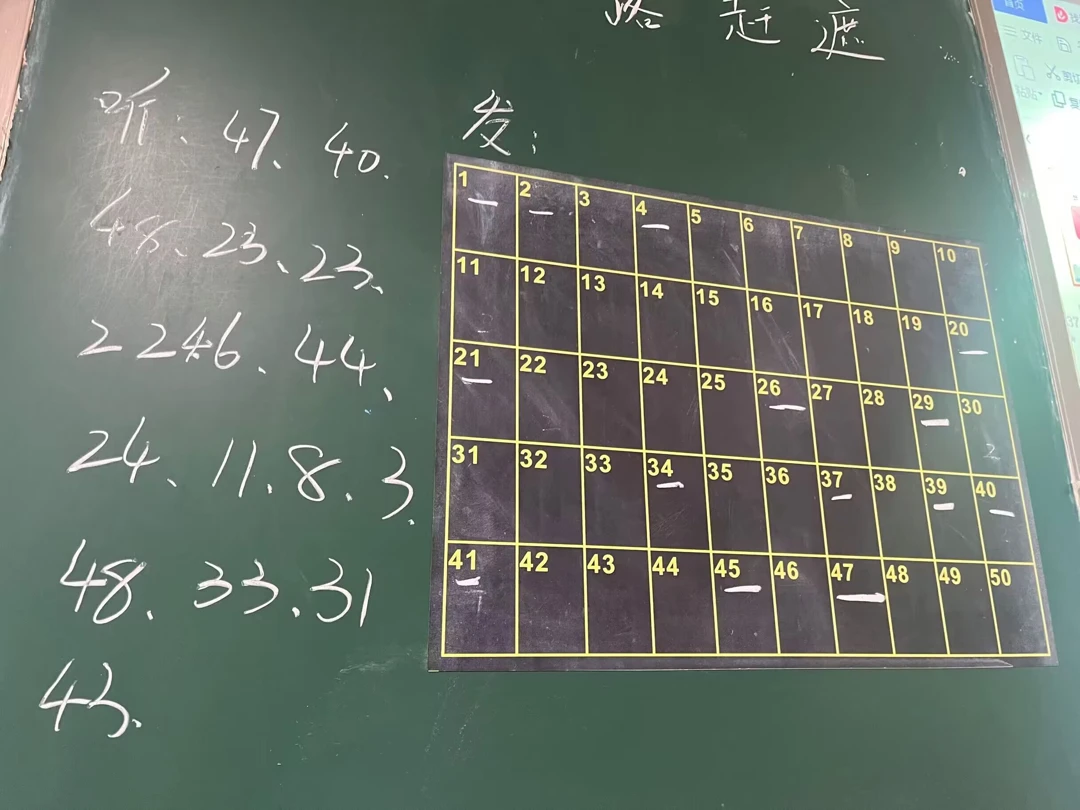 赶 遮
听: 47、40.
48、23、23、
2246、44、
24、11.8、3、
48、33、31
43、
发:
1 2 3 4 5 6 7 8 9 10
11 12 13 14 15 16 17 18 19 20
21 22 23 24 25 26 27 28 29 30
2
31 32 33 34 35 36 37 38 39 40
41 42 43 44 45 46 47 48 49 50
首页
文件